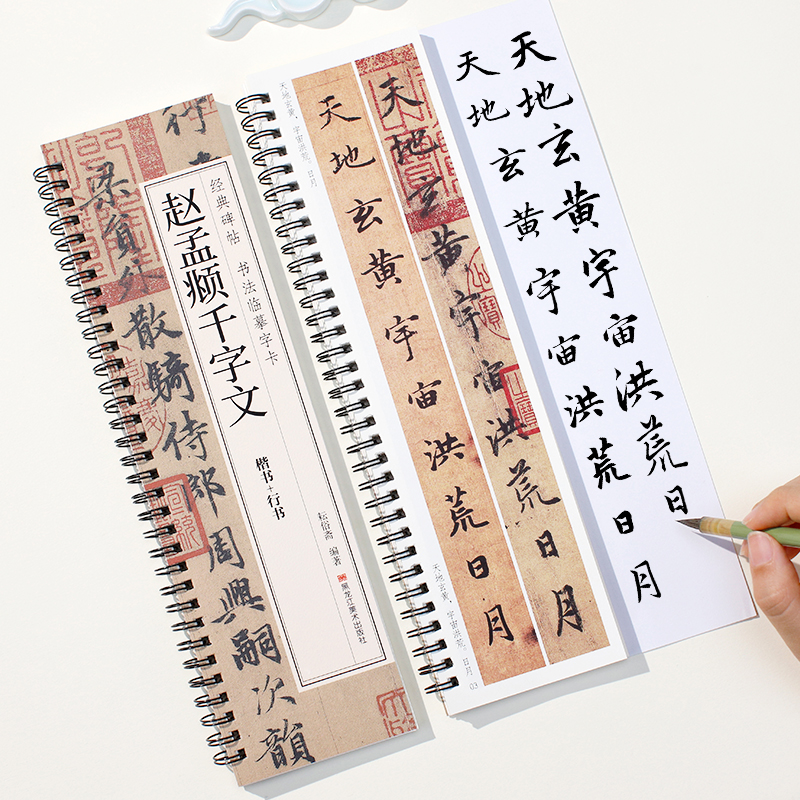 经典碑帖 书法临摹字卡
赵孟𫖯千字文
楷书+行书
耘俗斋 编著
黑龙江美术出版社
梁員外散騎侍郎周興嗣次韻
天地玄黄，宇宙洪荒。日月
天地玄黄宇宙洪荒日月
天地玄黄宇宙洪荒日月
天地玄黄，宇宙洪荒。日月
03
天地玄黄宇宙洪荒日月
天地玄黄宇宙洪荒日